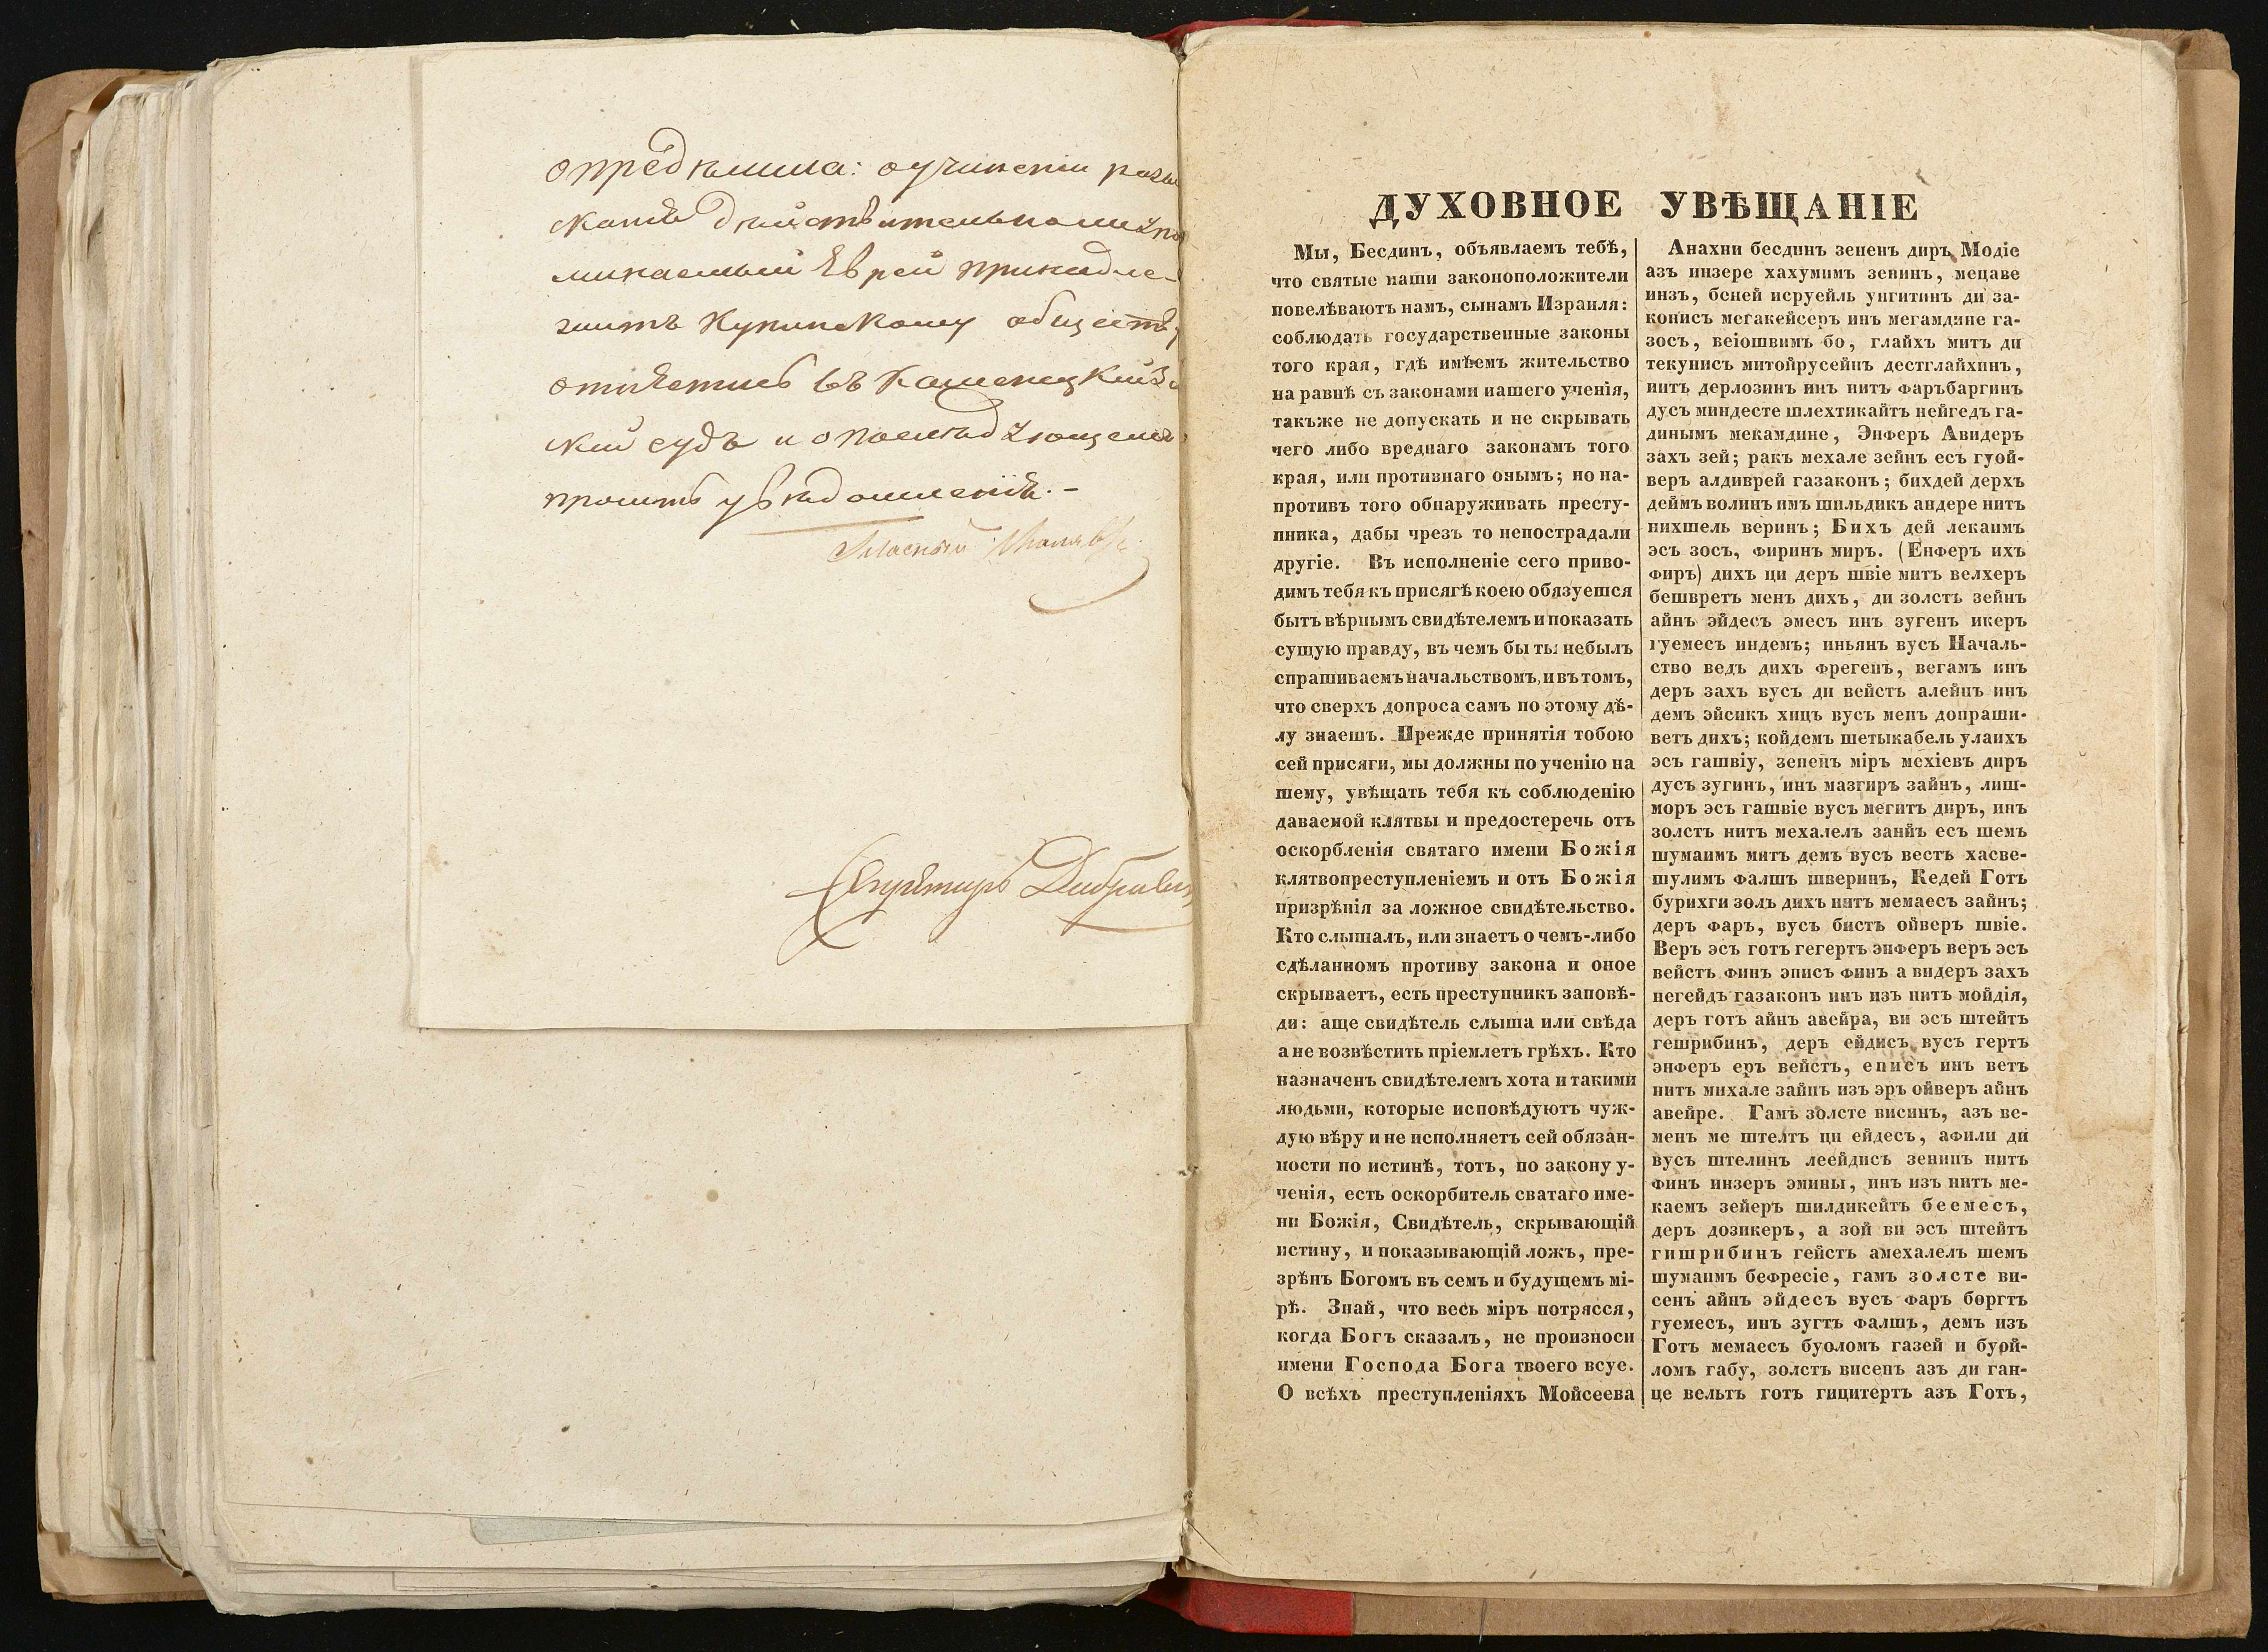 опредѣлила: о учиненіи
дѣйствительноли
Еврей принадле-
житъ Купинскому обществу
отнестись въ Каменецкій
судъ и о
проситъ увѣдомленія.-
Гласный
Секретарь
ДУХОВНОЕ УВѢЩАНІЕ
Мы, Бесдинъ, объявлаемъ тебѣ,
что святые наши законоположители
повелѣваютъ намъ, сынамъ Израиля:
соблюдать государственные законы
того края, гдѣ имѣемъ жительство
на равнѣ съ законами нашего ученія,
такъже не допускать и не скрывать
чего либо вреднаго законамъ того
края, или противнаго онымъ; но на-
противъ того обнаруживать престу-
пника, дабы чрезъ то непострадали
другіе. Въ исполненіе сего приво-
димъ тебя къ присягѣ коею обязуешся
быть вѣрнымъ свидѣтелемъ и показать
сущую правду, въ чемъ бы ты небылъ
спрашиваемъ начальствомъ, и въ томъ,
что сверхъ допроса самъ по этому дѣ-
лу знаешъ. Прежде принятія тобою
сей присяги, мы должны по ученію на
шему, увѣщать тебя къ соблюденію
даваемой клятвы и предостеречь отъ
оскорбленія святаго имени Божія
клятвопреступленіемъ и отъ Божія
призрѣнія за ложное свидѣтельство.
Кто слышалъ, или знаетъ о чемъ-либо
сдѣланномъ противу закона и оное
скрываетъ, есть преступникъ заповѣ-
ди: аще свидѣтель слыша или свѣда
а не возвѣстить пріемлетъ грѣхъ. Кто
назначенъ свидѣтелемъ хота и такими
людьми, которые исповѣдуютъ чуж-
дую вѣру и не исполняетъ сей обязан-
ности по истинѣ, тотъ, по закону у-
ченія, есть оскорбитель сватаго име-
ни Божія, Свидѣтель, скрывающій
истину, и показывающій ложъ, пре-
зрѣнъ Богомъ въ семъ и будущемъ мі-
рѣ. Знай, что весь міръ потрясся,
когда Богъ сказалъ, не произноси
имени Господа Бога твоего всуе.
О всѣхъ преступленіяхъ Мойсеева
Анахни бесдинъ зененъ диръ Модіе
азъ инзере хахумимъ зенинъ, мецаве
инзъ, бсней исруейль унгитинъ ди за-
конисъ мегакейсеръ инъ мегамдине га-
зосъ, веіошвимъ бо, глайхъ митъ ди
текунисъ митойрусейнъ дестглайхинъ,
нитъ дерлозинъ инъ нитъ фаръбаргинъ
дусъ миндесте шлехтикайтъ нейгедъ га-
динымъ мекамдине, Энферъ Авидеръ
захъ зей; ракъ мехале зейнъ есъ гуой-
веръ алдиврей газаконъ; бихдей дерхъ
деймъ волинъ имъ шильдикъ андере нитъ
нихшель веринъ; Бихъ дей лекаимъ
эсъ зосъ, фиринъ миръ. (Енферъ ихъ
фиръ) дихъ ци деръ швіе митъ велхеръ
бешвретъ менъ дихъ, ди золстъ зейнъ
айнъ эйдесъ эмесъ инъ зугенъ икеръ
гуемесъ индемъ; иньянъ вусъ Началь-
ство ведъ дихъ фрегенъ, вегамъ инъ
деръ захъ вусъ ди вейстъ алейнъ инъ
демъ эйсикъ хицъ вусъ менъ допраши-
ветъ дихъ; койдемъ шетыкабель улаихъ
эсъ гашвіу, зененъ міръ мехіевъ диръ
дусъ зугинъ, инъ мазгиръ зайнъ, лиш-
моръ эсъ гашвіе вусъ мегитъ диръ, инъ
золстъ нитъ мехалелъ занйъ есъ шемъ
шумаимъ митъ демъ вусъ вестъ хасве-
шулимъ фалшъ шверинъ, Кедей Готъ
бурихги золъ дихъ нитъ мемаесъ зайнъ;
деръ фаръ, вусъ бистъ ойверъ швіе.
Веръ эсъ готъ гегертъ энферъ веръ эсъ
вейстъ финъ эписъ финъ а видеръ захъ
негейдъ газаконъ инъ изъ нитъ мойдія,
деръ готъ айнъ авейра, ви эсъ штейтъ
гешрибинъ, деръ ейдисъ вусъ гертъ
энферъ еръ вейстъ, еписъ инъ ветъ
нитъ михале зайнъ изъ эръ ойверъ айнъ
авейре. Гамъ золсте висинъ, азъ ве-
менъ ме штелтъ ци ейдесъ, афили ди
вусъ штелинъ леейдисъ зенинъ нитъ
финъ инзеръ эмины, инъ изъ нитъ ме-
каемъ зейеръ шилдикейтъ беемесъ,
деръ дозикеръ, а зой ви эсъ штейтъ
гишрибинъ гейстъ амехалелъ шемъ
шумаимъ бефресіе, гамъ золсте ви-
сенъ айнъ эйдесъ вусъ фаръ боргтъ
гуемесъ, инъ зугтъ фалшъ, демъ изъ
Готъ мемаесъ буоломъ газей и буой-
ломъ габу, золстъ висенъ азъ ди ган-
це вельтъ готъ гицитертъ азъ Готъ,